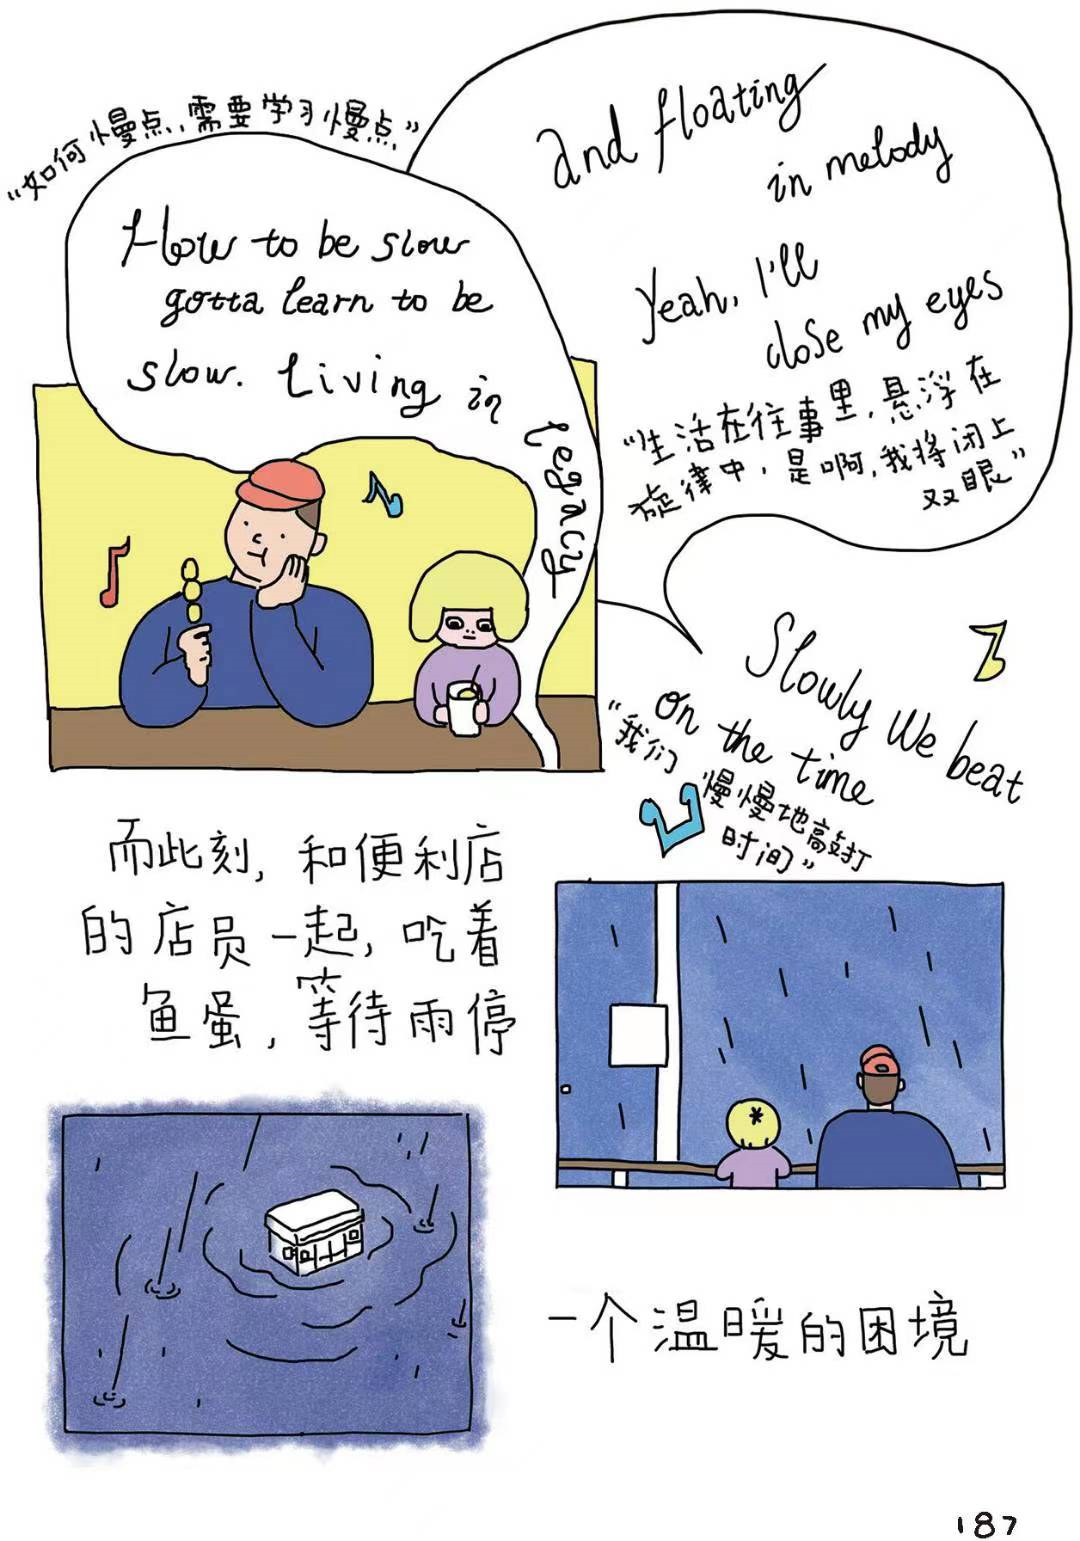 “如何慢点,需要学习慢点”
How to be slow
gotta learn to be
slow. Living in
legacy
and floating
in melody
Yeah, I'll
close my eyes
“生活在往事里,悬浮在
旋律中,是啊,我将闭上
双眼”
Slowly We beat
on the time
“我们
慢慢地敲打
时间”
而此刻,和便利店
的店员一起,吃着
鱼蛋,等待雨停
一个温暖的困境
187